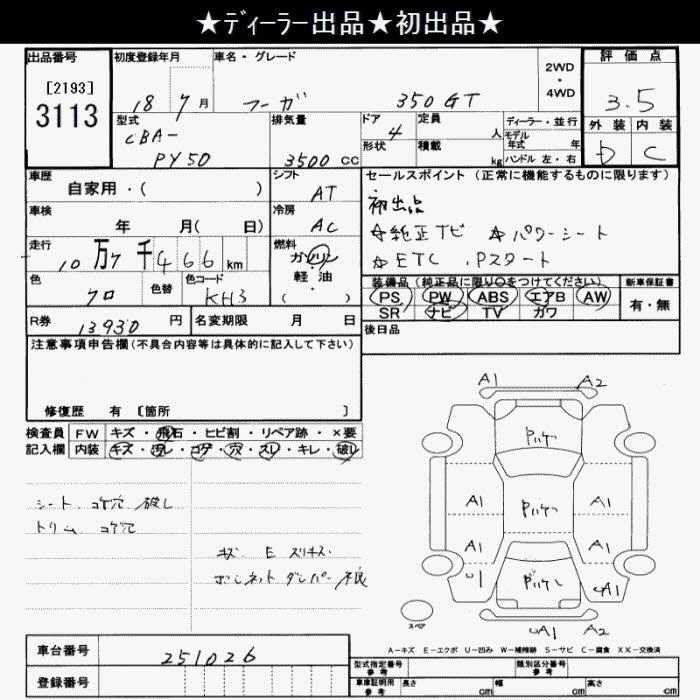 ★ディーラー出品★初出品★
出品番号 初度登録年月 車名・グレード 評価点
[2193] 2WD・4WD
3113 18 7月 フーガ 350GT 3.5
型式 排気量 ドア 定員 ディーラー・並行 外装 内装
CBA- 4 人 モデル年式 年
PY50 3500CC 形状 積載 kg ハンドル 左・右 D C
車歴 シフト セールスポイント(正常に機能するものに限ります)
自家用・( ) AT 初出品
車検 冷房 ☆純正TV ☆パワーシート
年 月( 日) AC ☆ETC .Pスタート
走行 燃料
10万7千466km ガソリン・軽油・( )
色 色替 色コード 装備品(純正品に限り○をつけてください) 新車保証書
クロ KH3 PS PW ABS エアB AW 有・無
SR ナビ TV ガワ
R券 13930円 名変期限 月 日 後日品
注意事項申告欄(不具合内容等は具体的に記入して下さい)
修復歴 有 〔箇所 〕
検査員 FW キズ・飛石・ヒビ割・リペア跡・×要
記入欄 内装 キズ・汚レ・コゲ・穴・スレ・キレ・破レ
シート コゲ穴 破レ
トリム コゲ穴
キズ E スリキズ.
ボンネットダンパー不良
A1 A2
A1 A1
A1 A1
A1
A1 A2
スペア
A-キズ E-エクボ U-凹み W-補修跡 S-サビ C-腐食 XX-交換済
車台番号 251026
登録番号
型式指定番号 参考 類別区分番号 参考
車庫証明用 参考 長さ cm 幅 cm 高さ cm